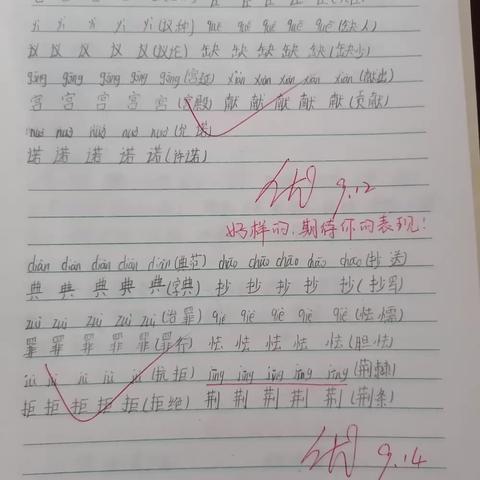 yì yì yì yì yì quē quē quē quē quē (缺人)
议 议 议 议 议 (议论) 缺 缺 缺 缺 缺 (缺少)
gōng gōng gōng gōng gōng (宫廷) xiàn xiàn xiàn xiàn xiàn (献出)
宫 宫 宫 宫 宫 (宫殿) 献 献 献 献 献 (贡献)
nuò nuò nuò nuò nuò (允诺)
诺 诺 诺 诺 诺 (许诺)
优 9.12
好样的,期待你的表现!
diǎn diǎn diǎn diǎn diǎn chāo chāo chāo chāo chāo (抄送)
典 典 典 典 典 (字典) 抄 抄 抄 抄 抄 (抄写)
zuì zuì zuì zuì zuì (治罪) qiè qiè qiè qiè qiè (怯懦)
罪 罪 罪 罪 罪 (罪行) 怯 怯 怯 怯 怯 (胆怯)
jù jù jù jù jù (抗拒) jīng jīng jīng jīng jīng (荆棘)
拒 拒 拒 拒 拒 (拒绝) 荆 荆 荆 荆 荆 (荆条)
优 9.14